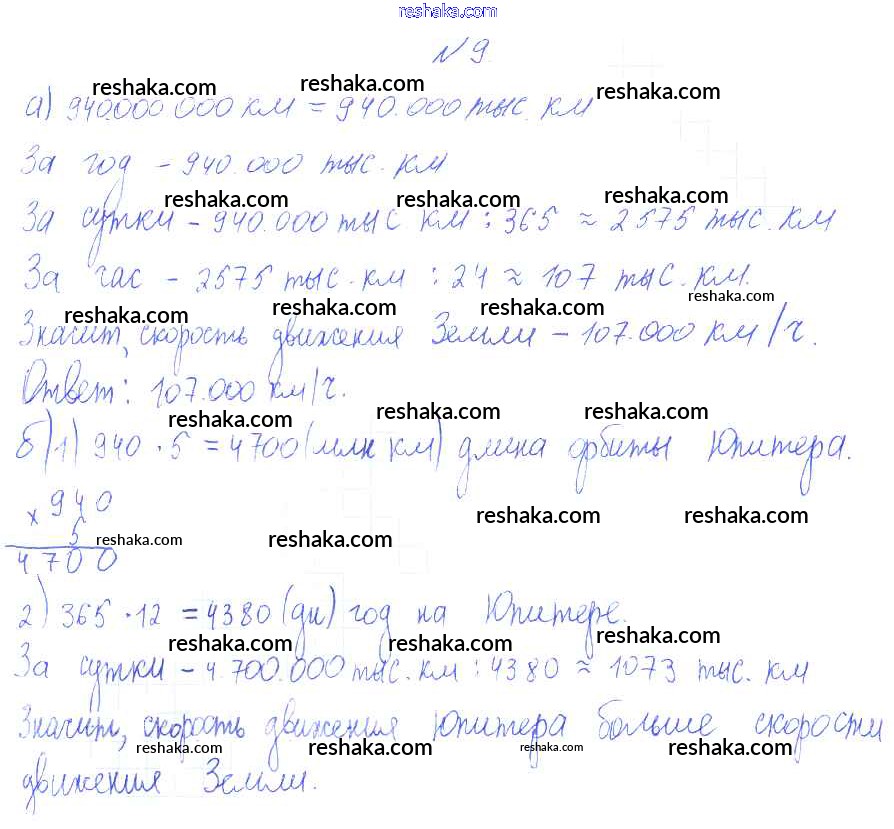 reshaka.com
№9
reshaka.com reshaka.com reshaka.com
а) 940.000 000 км = 940.000 тыс. км
За год – 940.000 тыс. км
reshaka.com reshaka.com reshaka.com
За сутки – 940.000 тыс км : 365 ≈ 2575 тыс. км
За час – 2575 тыс. км : 24 ≈ 107 тыс. км.
reshaka.com reshaka.com reshaka.com reshaka.com
Значит, скорость движения Земли – 107.000 км/ч.
Ответ: 107.000 км/ч.
reshaka.com reshaka.com reshaka.com
б) 1) 940 · 5 = 4700 (млн км) длина орбиты Юпитера.
× 940
5
reshaka.com reshaka.com reshaka.com reshaka.com
4700
2) 365 · 12 = 4380 (дн) год на Юпитере.
reshaka.com reshaka.com reshaka.com
За сутки – 4.700.000 тыс. км : 4380 ≈ 1073 тыс. км
Значит, скорость движения Юпитера больше скорости
reshaka.com reshaka.com reshaka.com reshaka.com
движения Земли.